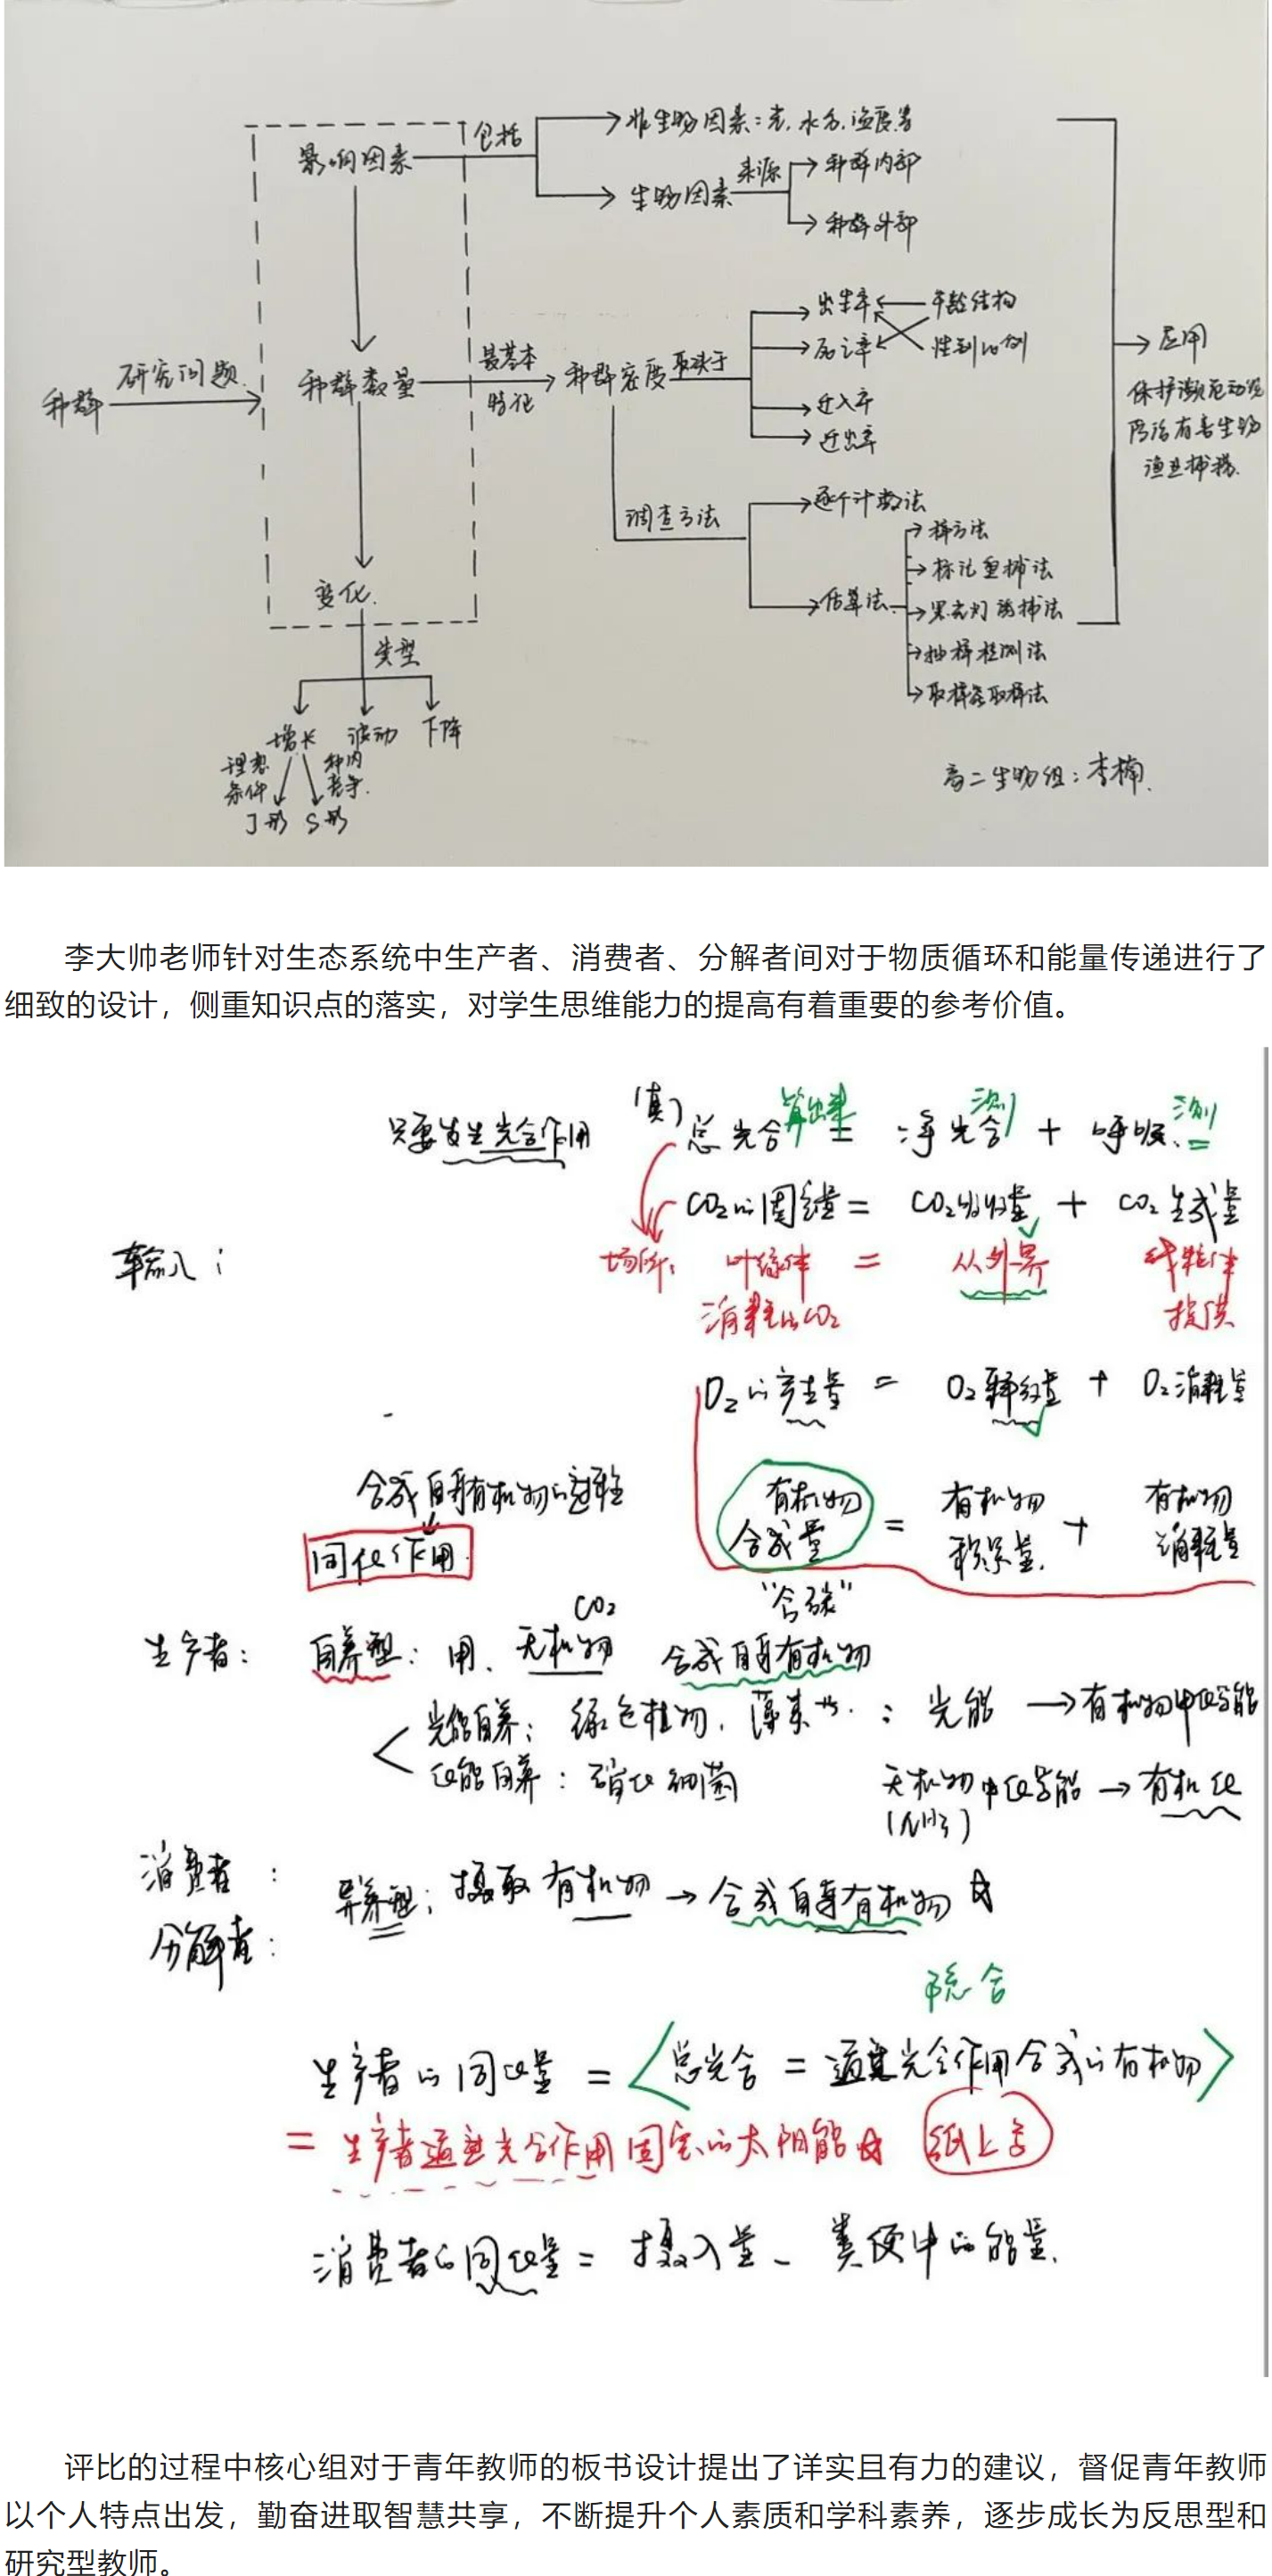 影响因素 包括 非生物因素：光、水分、温度等
生物因素 来源 种群内部
种群外部
种群 研究问题 种群数量 最基本特征 种群密度 取决于
出生率 年龄结构
死亡率 性别比例
迁入率
迁出率
应用
保护濒危动况
防治有害生物
渔业捕捞
调查方法 逐个计数法
估算法
样方法
标记重捕法
黑光灯诱捕法
抽样检测法
取样器取样法
变化
类型
增长 波动 下降
理想条件 种内竞争
J形 S形
高二生物组：李楠
李大帅老师针对生态系统中生产者、消费者、分解者间对于物质循环和能量传递进行了
细致的设计，侧重知识点的落实，对学生思维能力的提高有着重要的参考价值。
(真) 算出来 测 测
只要发生光合作用 总光合 = 净光合 + 呼吸
CO₂的固定量 = CO₂吸收量 + CO₂生成量
输入：
场所：叶绿体 = 从外界 线粒体
消耗的CO₂ 提供
O₂的产生量 = O₂释放量 + O₂消耗量
合成自身有机物的过程
同化作用
有机物合成量 = 有机物积累量 + 有机物消耗量
CO₂ “含碳”
生产者：自养型：用、无机物 合成自身有机物
光能自养：绿色植物、藻类 ：光能 → 有机物中化学能
化能自养：硝化细菌 无机物中化学能 → 有机化
(NH₃)
消费者：
异养型：摄取有机物 → 合成自身有机物
分解者：
隐含
生产者的同化量 = <总光合 = 通过光合作用合成的有机物>
= 生产者通过光合作用固定的太阳能 纸上写
消费者的同化量 = 摄入量 - 粪便中的能量.
评比的过程中核心组对于青年教师的板书设计提出了详实且有力的建议，督促青年教师
以个人特点出发，勤奋进取智慧共享，不断提升个人素质和学科素养，逐步成长为反思型和
研究型教师。